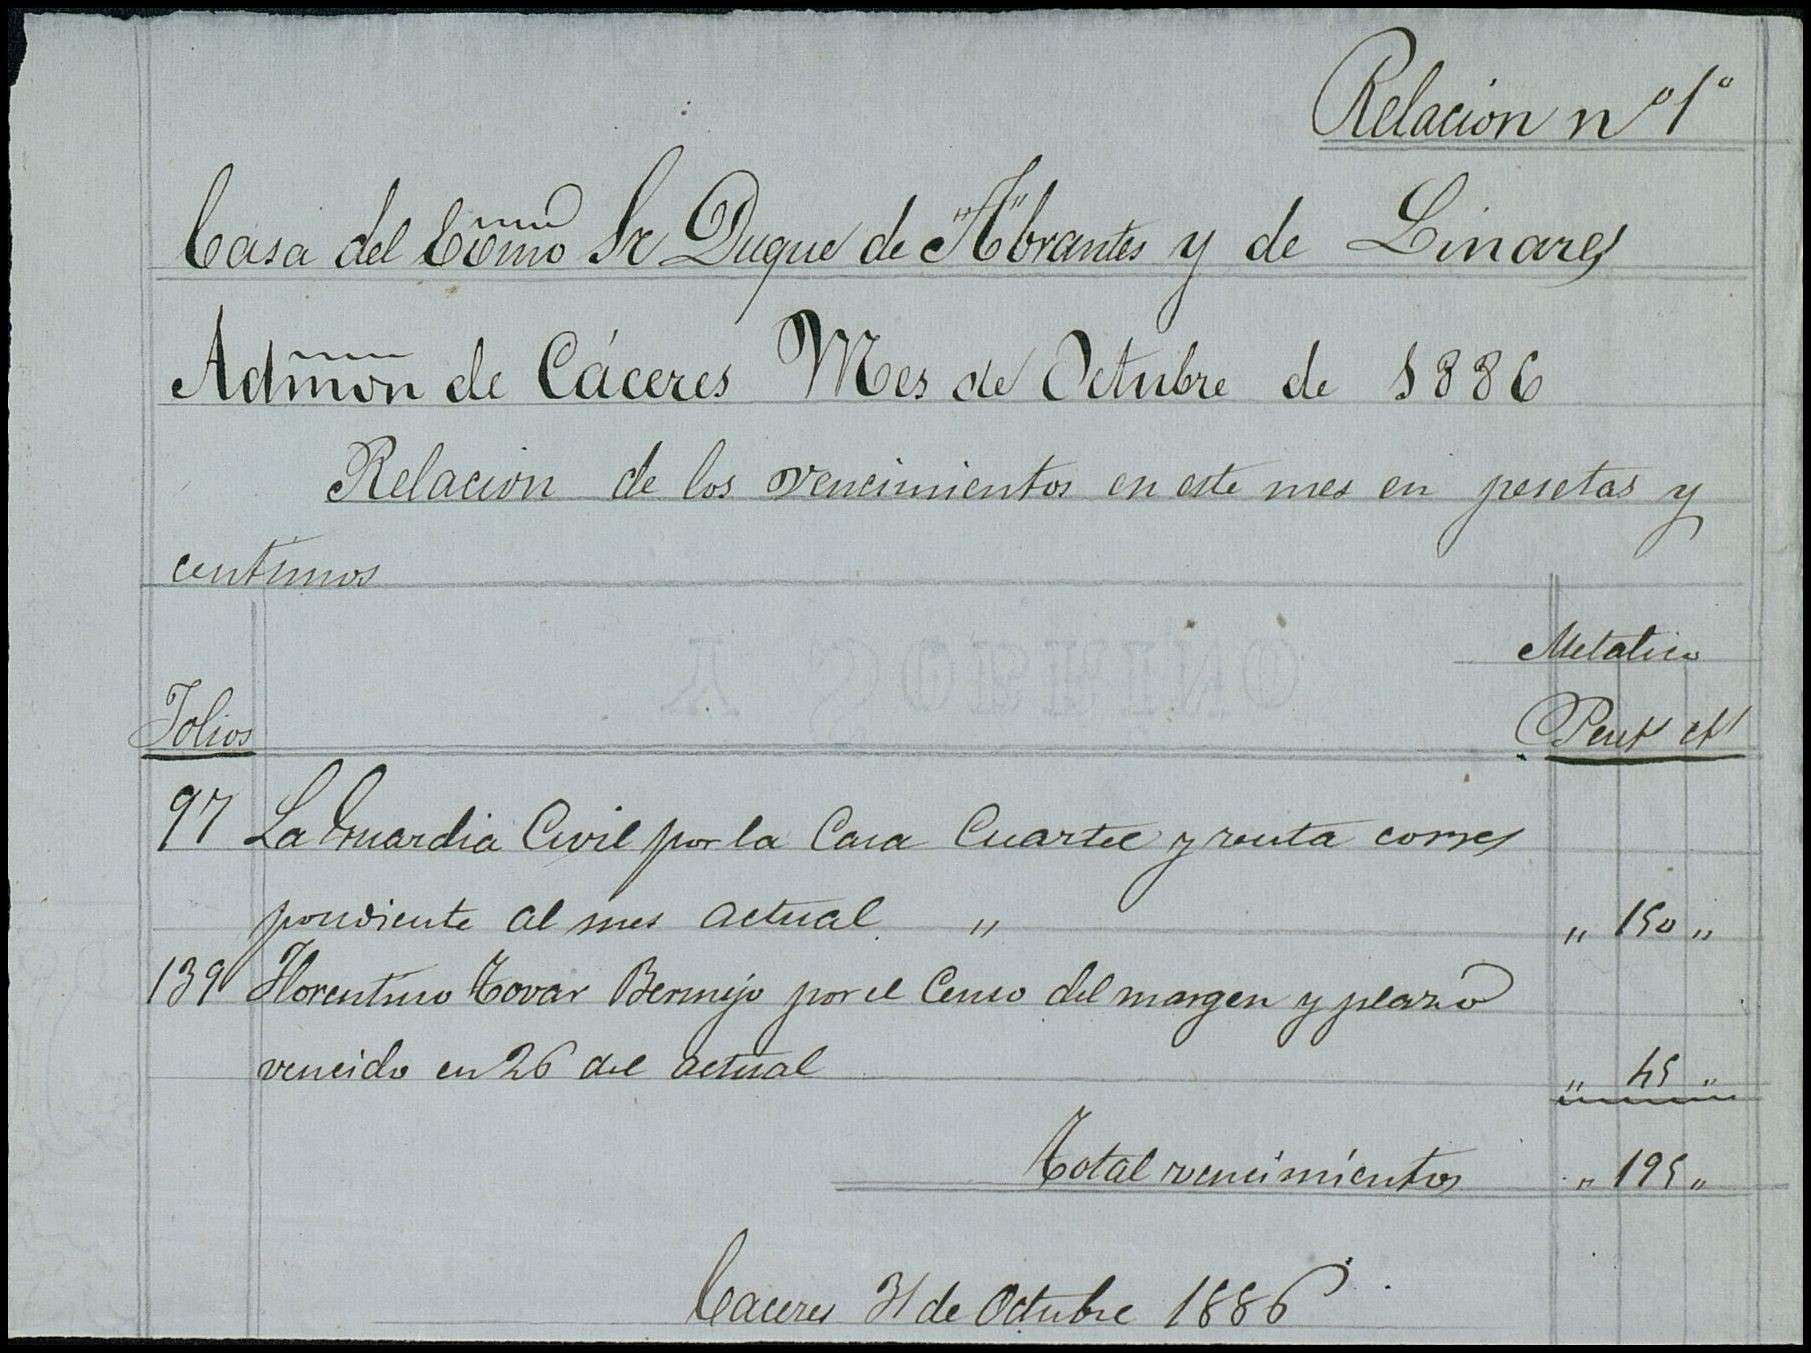 Relacion nº 1º
Casa del Exmo Sr Duque de "A"brantes y de Linares
Admon de Cáceres Mes de Octubre de 1886
Relacion de los vencimientos en este mes en pesetas y
centimos
Metalico
Folios Pests cts
97 La Guardia Civil por la Casa Cuartel y renta corres
pondiente al mes actual " " 150 "
139 Florentino Tovar Bermejo por el Censo del margen y plazo
vencido en 26 del actual " 45 "
Total vencimientos " 195 "
Caceres 31 de Octubre 1886